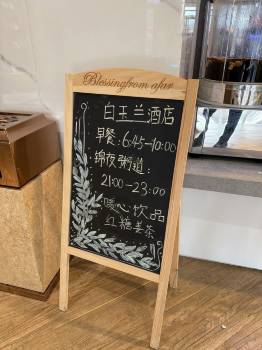 Blessingfrom afar
白玉兰酒店
早餐:6:45-10:00
锦夜粥道:
21:00-23:00
暖心饮品
红糖姜茶